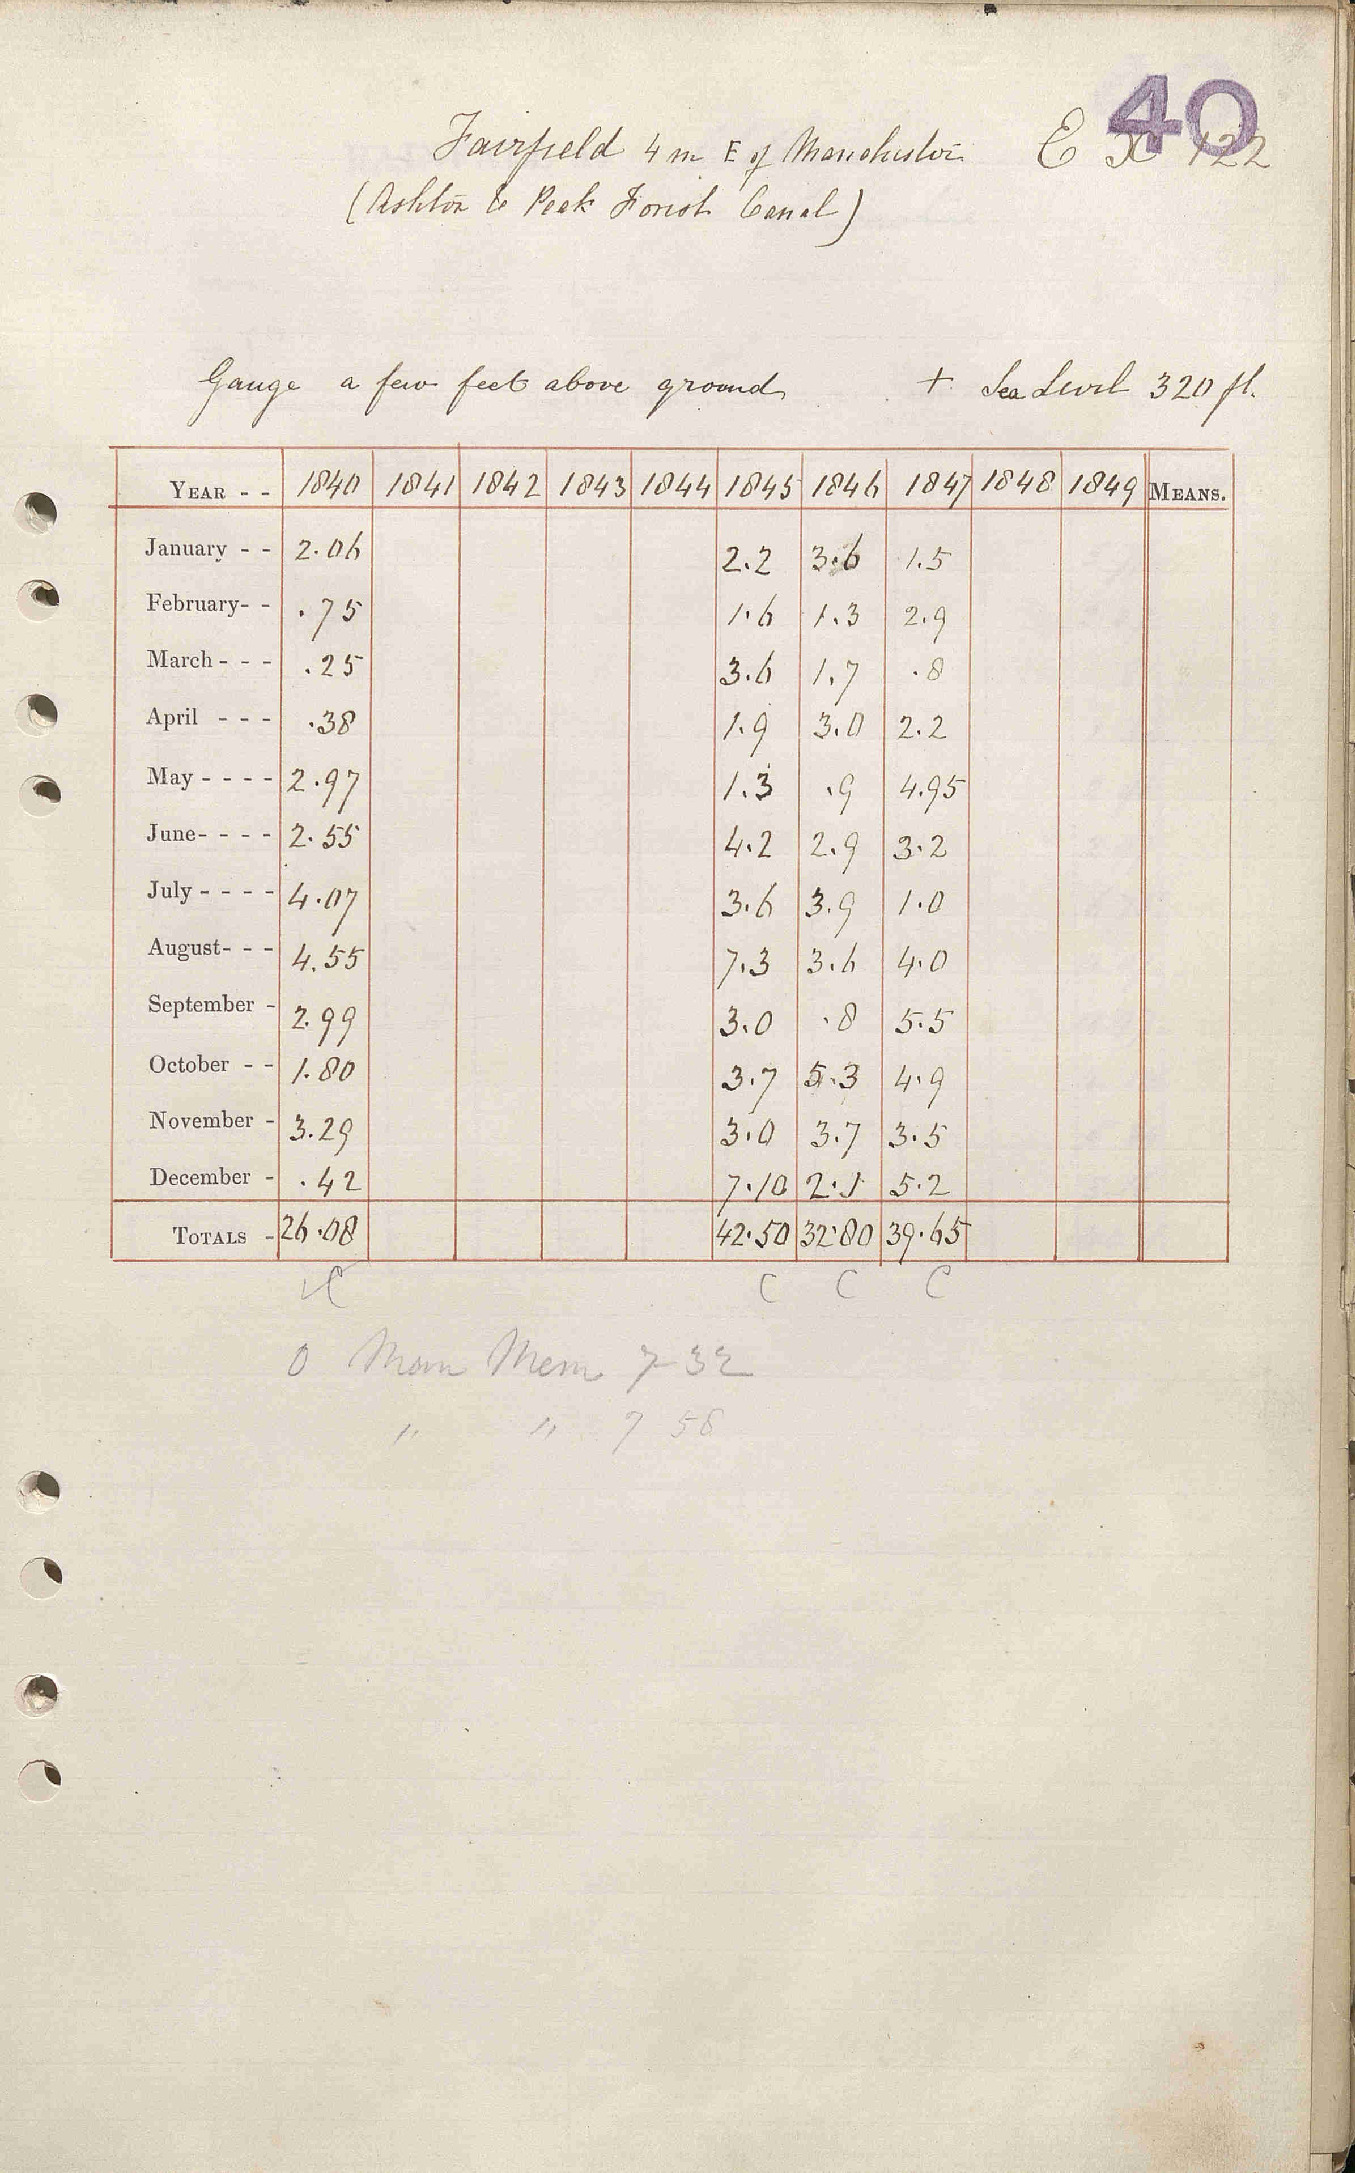 40
Fairfield 4 m E of Manchester E X 122
(Ashton & Peak Forest Canal)
Gauge a few feet above ground + Sea Level 320 ft.
YEAR - - 1840 1841 1842 1843 1844 1845 1846 1847 1848 1849 MEANS.
January - - 2.06 2.2 3.6 1.5
February- - .75 1.6 1.3 2.9
March - - - .25 3.6 1.7 .8
April - - - .38 1.9 3.0 2.2
May - - - - 2.97 1.3 .9 4.95
June- - - - 2.55 4.2 2.9 3.2
July - - - - 4.07 3.6 3.9 1.0
August- - - 4.55 7.3 3.6 4.0
September - 2.99 3.0 .8 5.5
October - - 1.80 3.7 5.3 4.9
November - 3.29 3.0 3.7 3.5
December - .42 7.10 2.1 5.2
TOTALS - 26.08 42.50 32.80 39.65
C C C C
0 Man Mem 7 32
" " 7 58